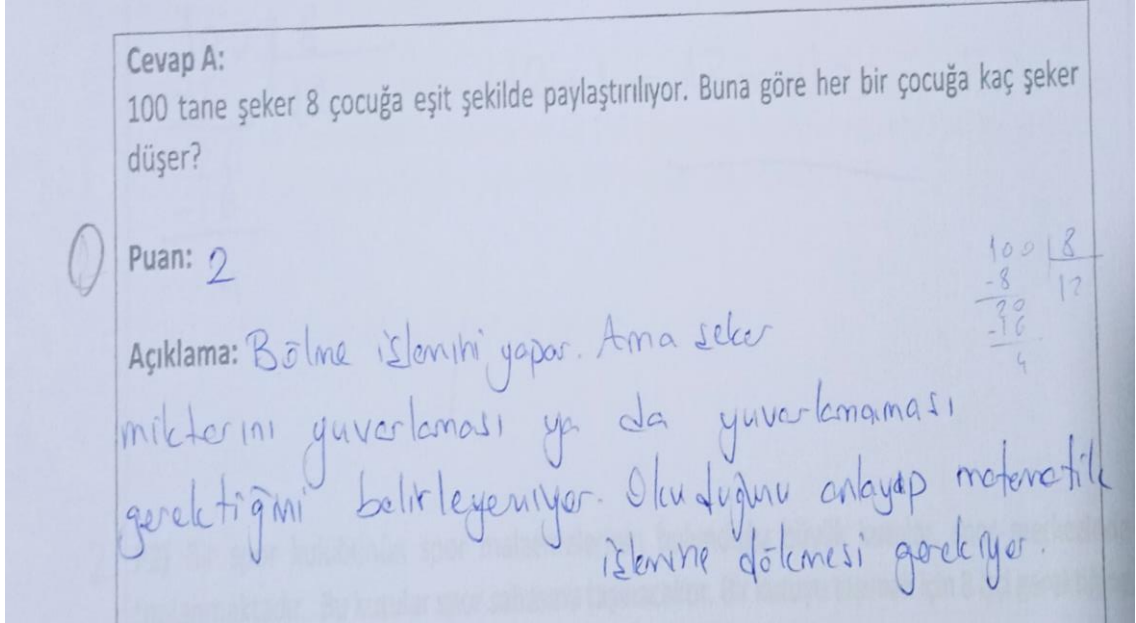 Cevap A:
100 tane şeker 8 çocuğa eşit şekilde paylaştırılıyor. Buna göre her bir çocuğa kaç şeker
düşer?
Puan: 2
100 8
-8 12
20
-16
4
Açıklama: Bölme işlemini yapar. Ama şeker
miktarını yuvarlaması ya da yuvarlamaması
gerektiğini belirleyemiyor. Okuduğunu anlayıp matematik
işlemine dökmesi gerekiyor.